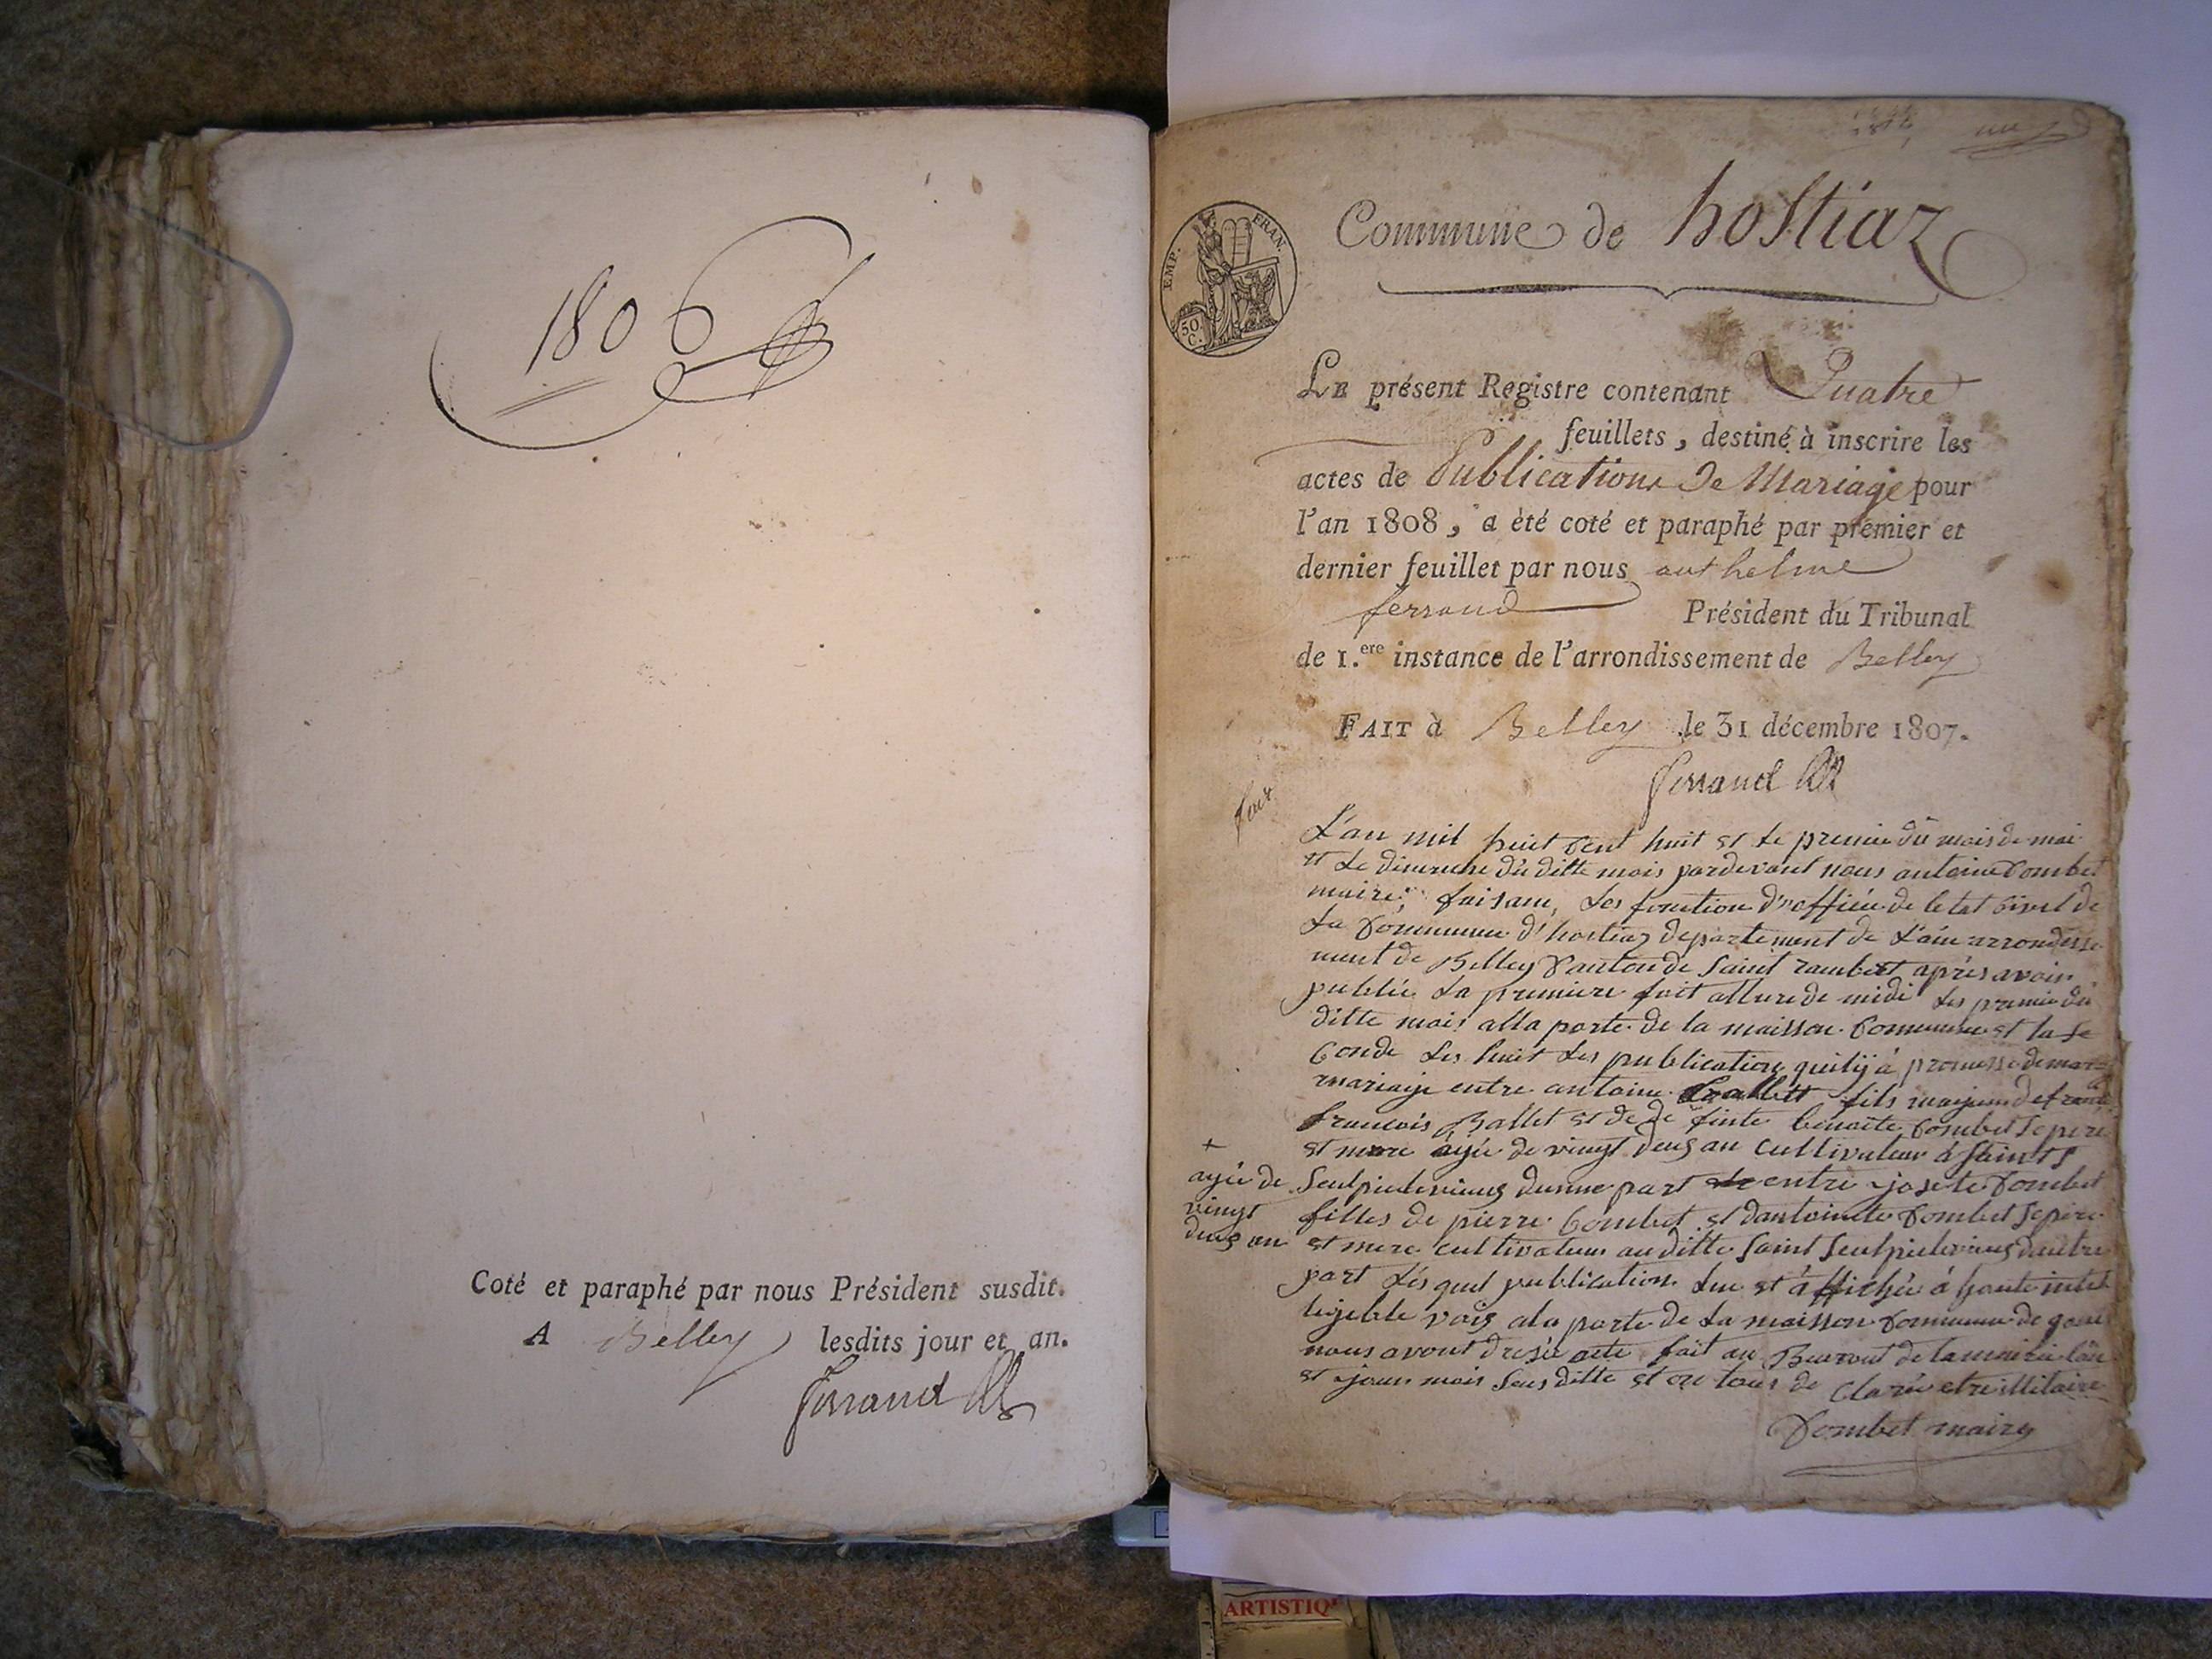 1806
Coté et paraphé par nous Président susdit.
A Belley lesdits jour et an.
Ferrand
Commune de hostiaz
EMP. FRAN.
50 C.
LE présent Registre contenant Quatre
feuillets, destiné à inscrire les
actes de Publications De Mariage pour
l'an 1808, a été coté et paraphé par premier et
dernier feuillet par nous anthelme
ferrand Président du Tribunal
de 1.ere instance de l'arrondissement de Belley
FAIT à Belley le 31 décembre 1807.
Ferrand
L'an mil huit Cent huit et le premie du mois de mai
et Le dimenche du ditte mois pardevant nous antoine Combet
maire, faisant, Les fonction d'officié de le tat Civil de
La Commune d'hostiaz departement de L'ain arrondisse
ment de Belley Canton de Saint rambert après avoir
publié La premiere fait allure de midi Les premie du
ditte mois alla porte de la maisson Commune et la se
Conde Les huit Les publication quilÿ à promesse de
mariaije entre antoine Ballet fils majeur de
francois Ballet et de de finte benoite Combet Se pere
et mere ajée de vingt deus an Cultivateur à Saint
Seulpicleviieus dunne part entre josete Combet
+
ajée de
vingt
deus an
filles de pierre Combet et dantoinete Combet Se pere
et mere Cultivateur au ditte Saint Seulpicleviieus dautre
part Les quel publication Lue et affichée à haute intel
lijeble vois ala porte de La maisson Commune de quoi
nous avont dresée acte fait au Beurout de la mairie Lan
et jour mois Sus ditte et on tous de Clarée etre illitaire
Combet maire
ARTISTIQ